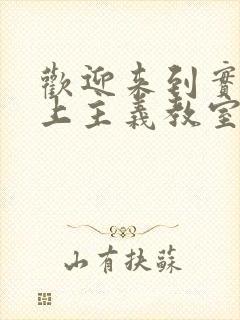 歡迎來到實
上主義教室
山有扶蘇